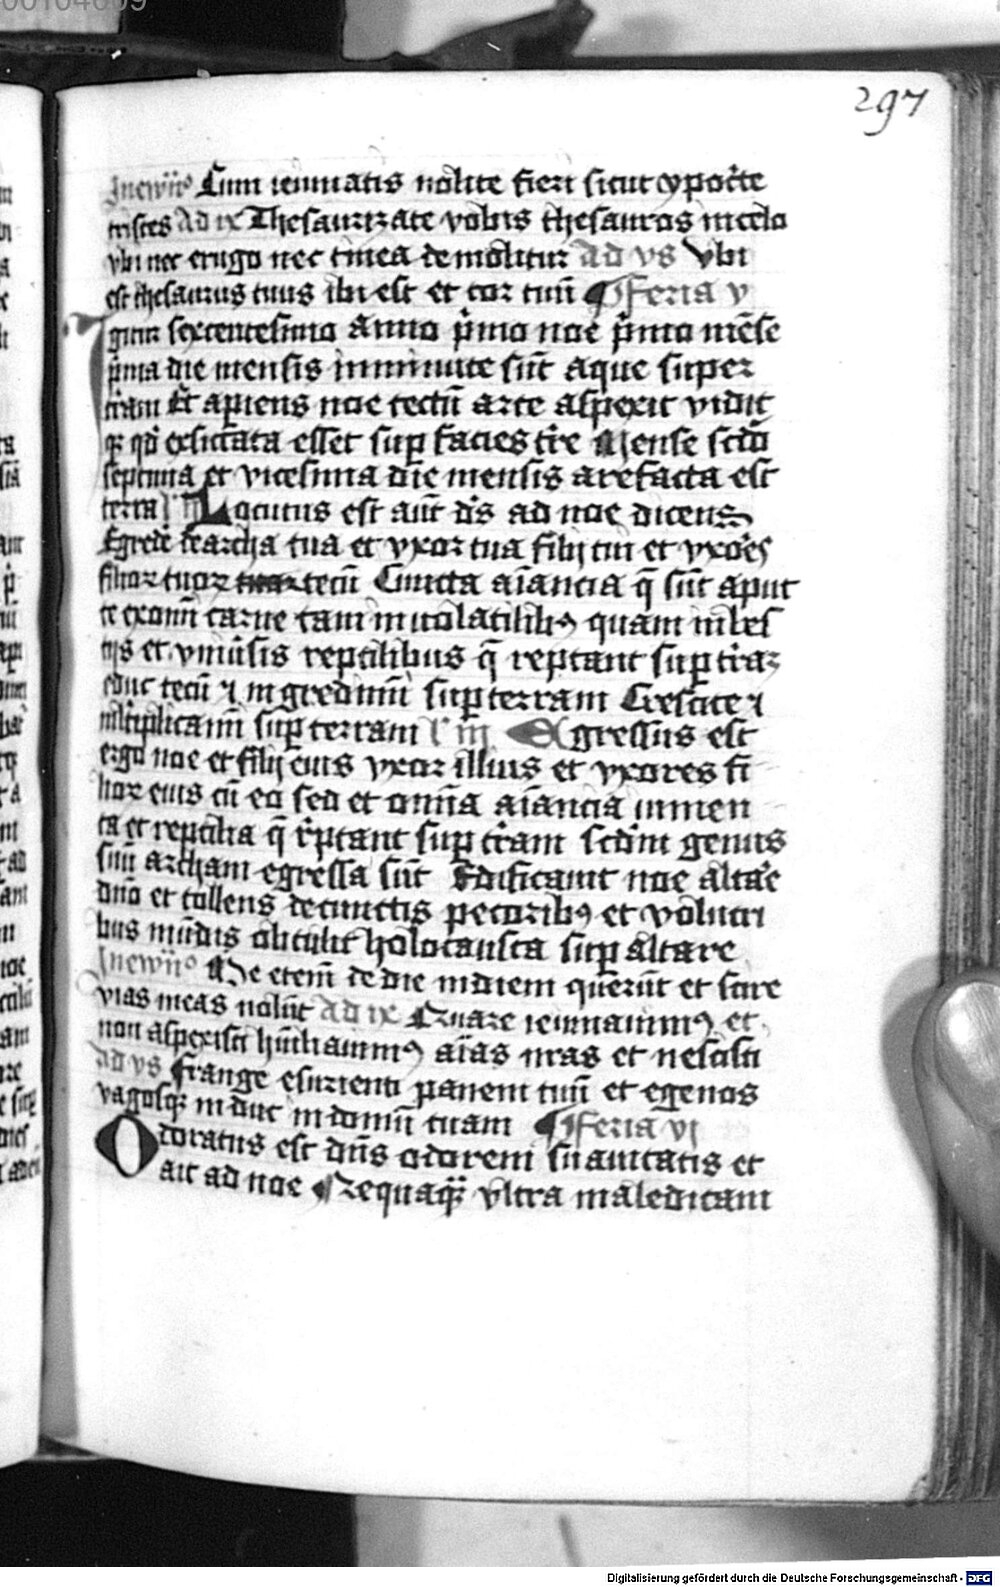 00104609
297
Inewῑῑᵒ Cum ieiunatis nolite fieri sicut ypocͥte
tristes Ad ix Thesaurizate vobis thesauros incelo
vbi nec erugo nec tinea demolitur Ad vs Vbi
est thesaurus tuus ibi est et cor tuū ¶ Feria v
Igitur sexcentesimo anno p̄mo noe p̄mo mēse
p̄ma die mensis inminute sūt aque super
t̄ram Et apiens noe tectū arce aspexit vidit
qz qd̄ exsiccata esset sup facies t̄re Mense scd̄o
septima et vicesima die mensis arefacta est
terra l' ij Locutus est aūt dn̄s ad noe dicens
Egrede dearcha tua et vxor tua filij tui et vxores
filior tuor tecū Cuncta aīancia q̄ sūt aput
te exomī carne tam inuolatilibꝫ quam inbes
tijs et vniūsis reptilibus q̄ reptant sup t̄raz
educ tecū ⁊ ingredimī sup terram Crescite ⁊
mltiplicamī sup terram l' iij Egressus est
ergo noe et filij eius vxor illius et vxores fi
lior eius cū eo sed et omīa aīancia iumen
ta et reptilia q̄ rptant sup t̄ram scdm genus
suū archam egressa sūt Edificauit noe altare
dn̄o et tollens decunctis pecoribꝫ et volucri
bus mūdis obtulit holocausta sup altare
Inewῑῑᵒ Me etenī dedie indiem querūt et scire
vias meas nolūt Ad ix Quare ieiunauimꝫ et
non aspexisti huīliauimꝫ aīas nras et nescisti
Ad vs Frange esurienti panem tuū et egenos
vagosqz induc indomū tuam ¶ Feria vi
Odoratus est dn̄s odorem suauitatis et
ait ad noe Nequaqz vltra maledicam
Digitalisierung gefördert durch die Deutsche Forschungsgemeinschaft - DFG